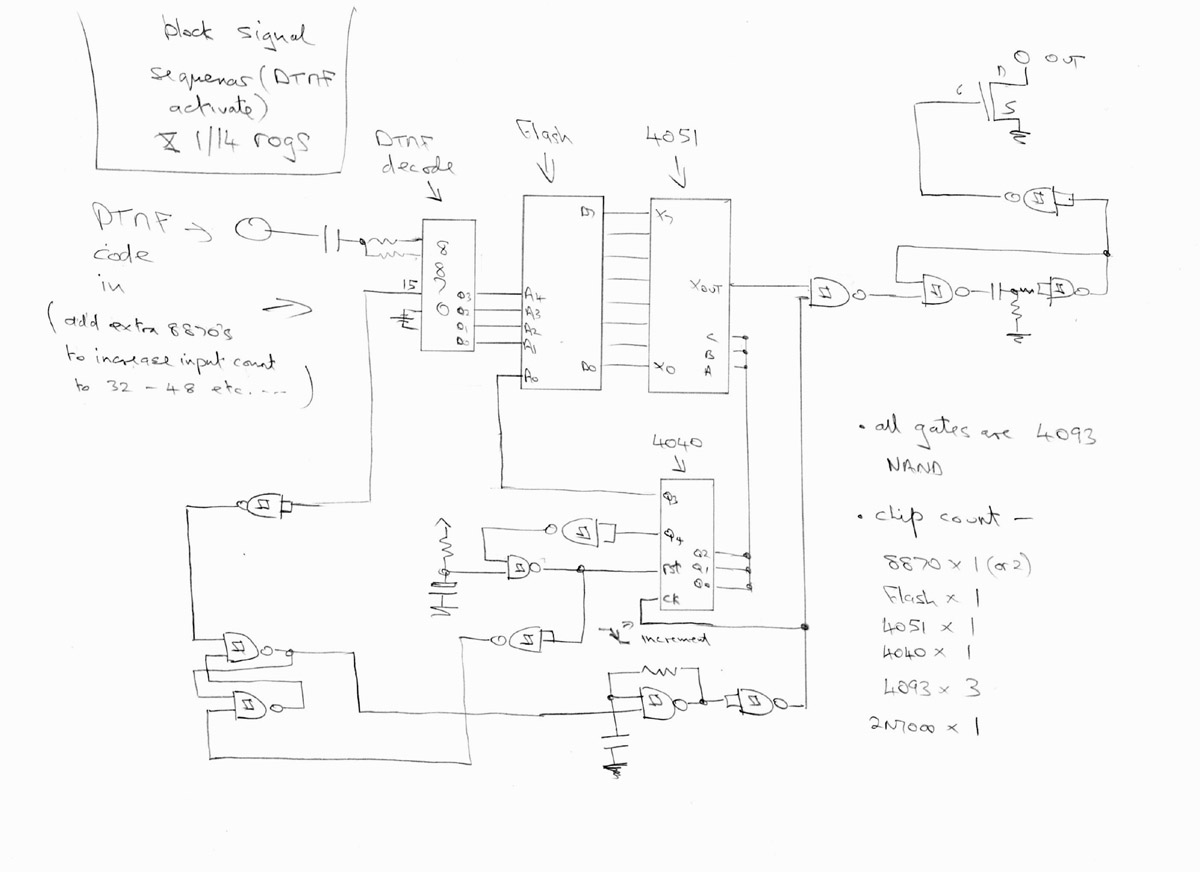 block signal
sequenas (DTMF
activate)
1/14 rogs
DTMF
decode
Flash
4051
DTMF
code
in
(add extra 8870's
to increase input count
to 32 - 48 etc....)
15
8870
Q3
Q2
Q1
Q0
A4
A3
A2
A1
A0
D7
D0
X7
X0
XOUT
C
B
A
G
D
S
OUT
4040
Q3
Q4
Rst
CK
Q2
Q1
Q0
"increment
• all gates are 4093
NAND
• chip count —
8870 x 1 (or 2)
Flash x 1
4051 x 1
4040 x 1
4093 x 3
2N7000 x 1